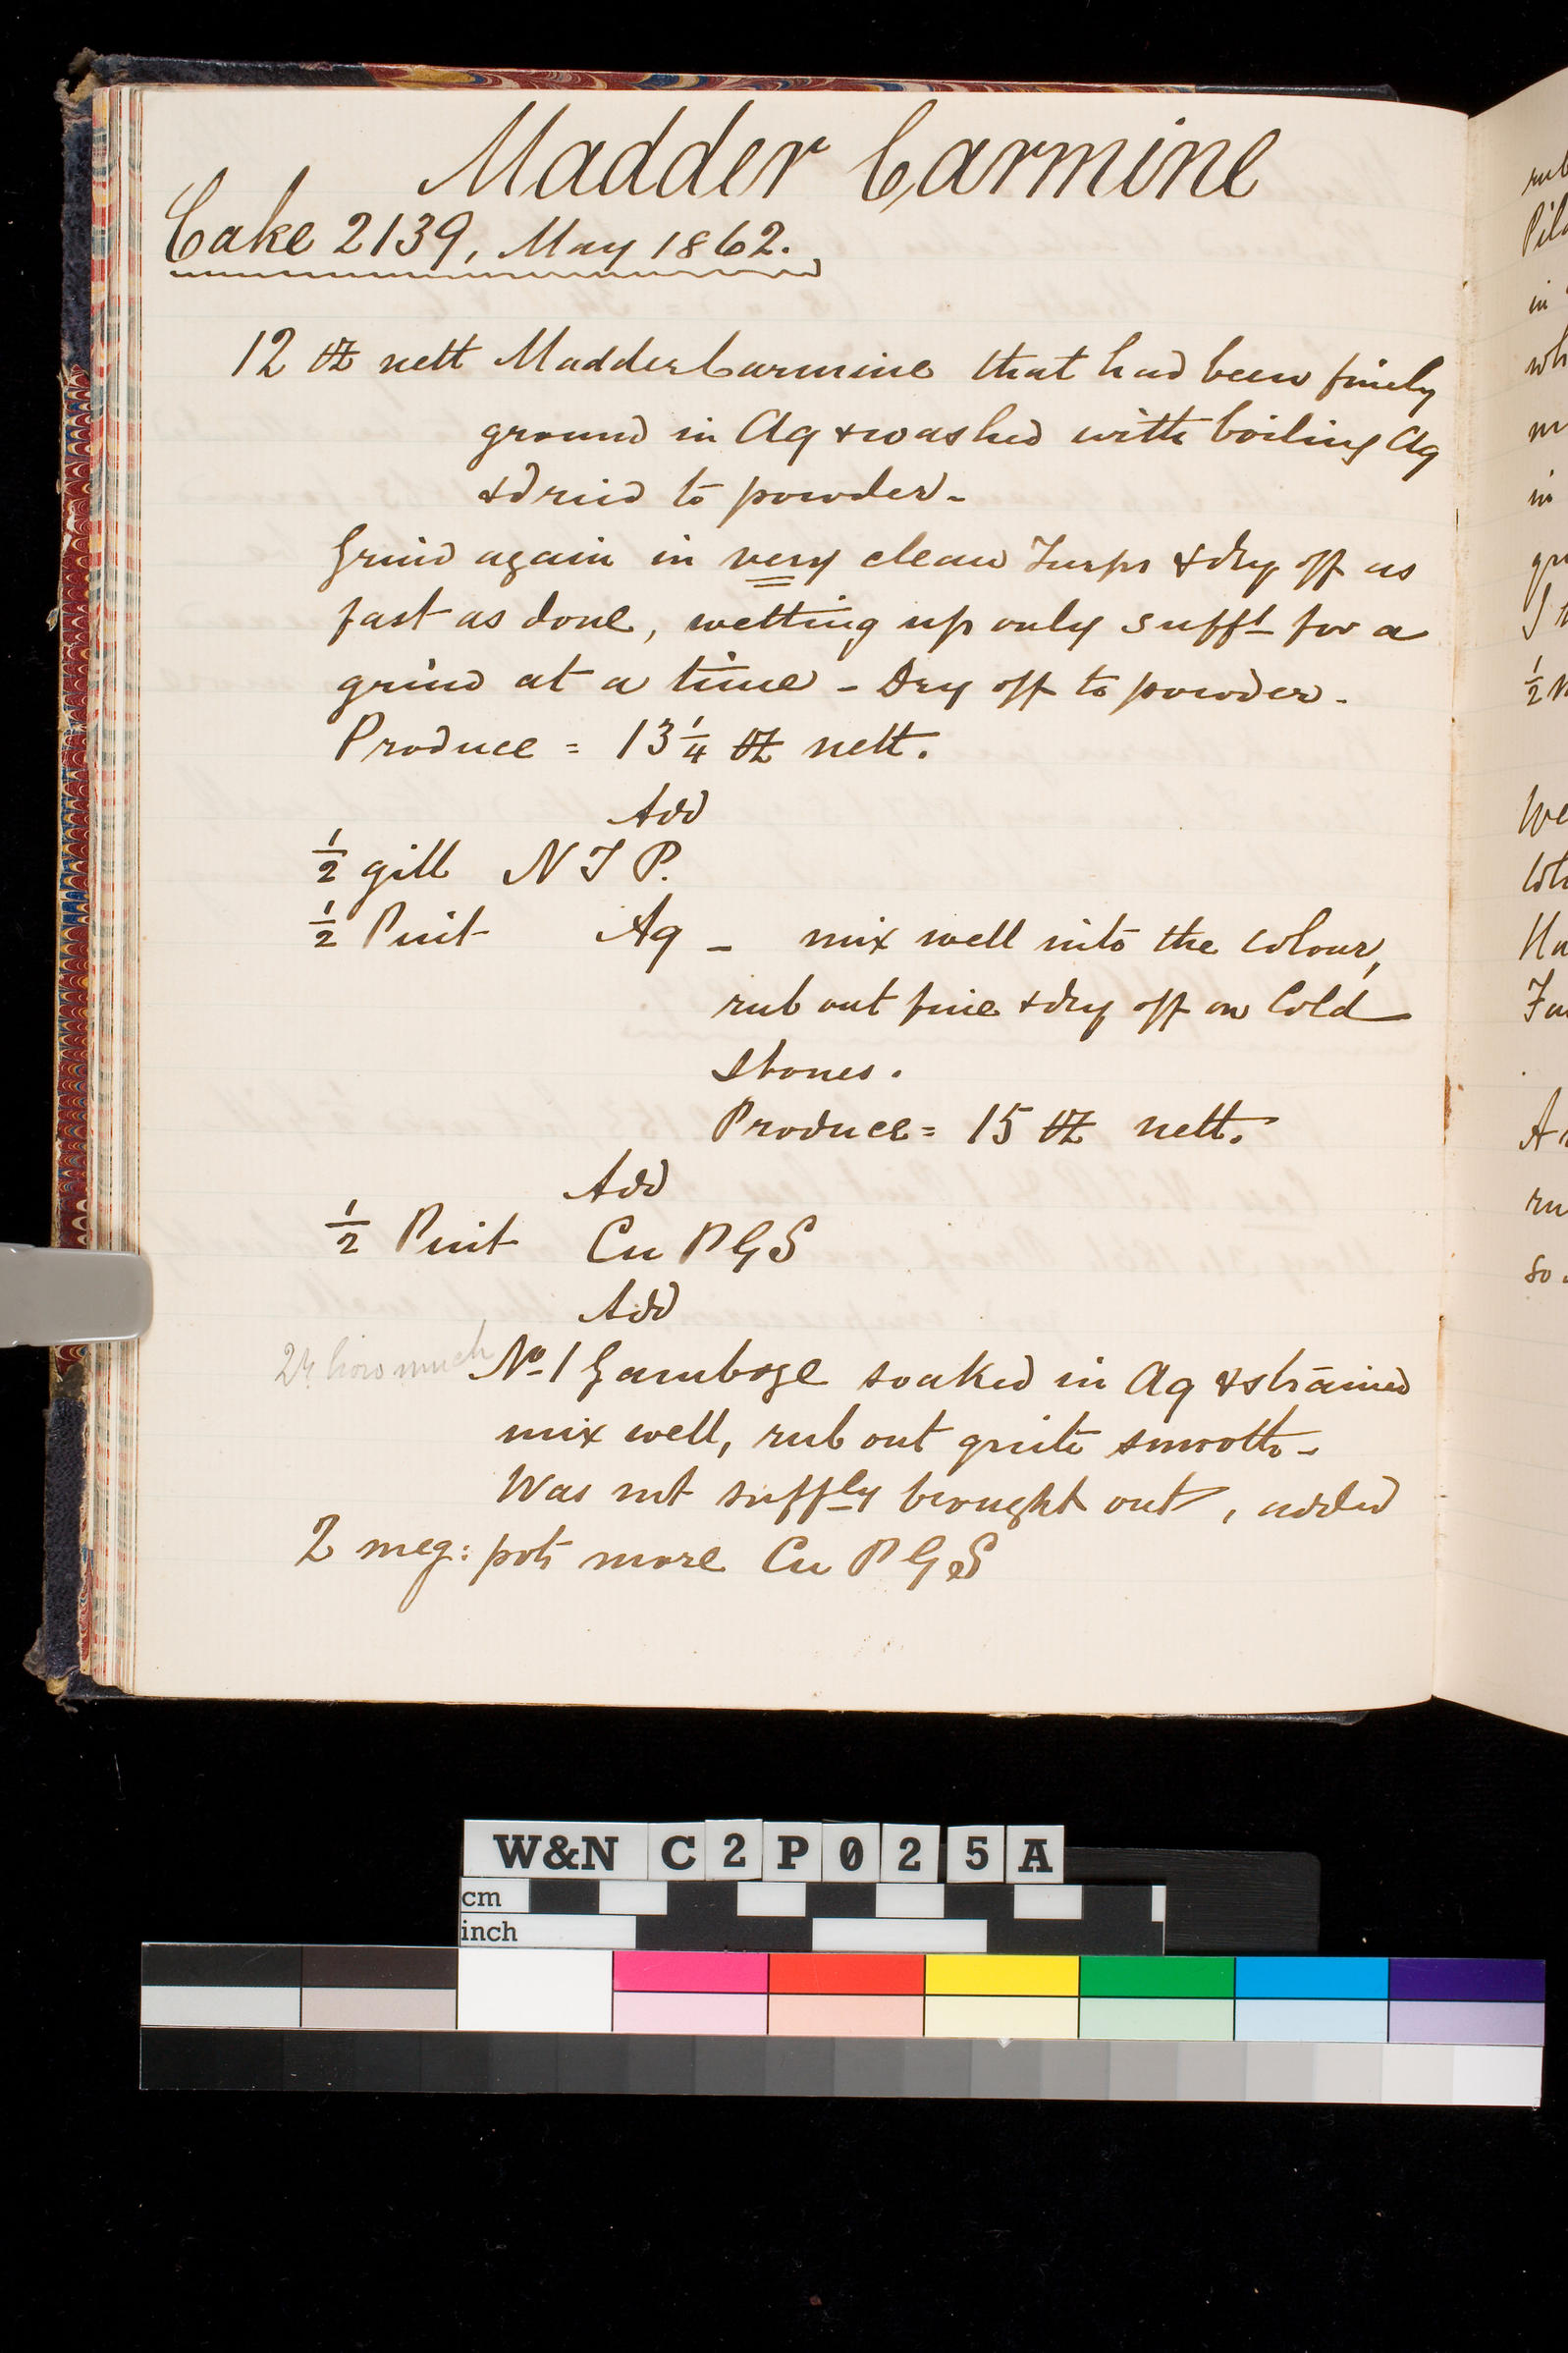 Madder Carmine
Cake 2139, May 1862.
12 lb nett Madder Carmine that had been finely
ground in Aq & washed with boiling Aq
& dried to powder -
Grind again in very clean Turps & dry off as
fast as done, wetting up only sufft for a
grind at a time - Dry off to powder -
Produce = 13 1/4 lb nett.
Add
1/2 gill N T P.
1/2 Pint Aq - mix well into the colour,
rub out fine & dry off on Cold
Stones.
Produce = 15 lb nett.
Add
1/2 Pint Cu P G S
Add
how much No 1 Gamboge soaked in Aq & strained
mix well, rub out quite smooth -
Was not suffly brought out, added
2 meg: pots more Cu P G S
rub
in
in
1/2
We
so
W&N C2P025A
cm
inch